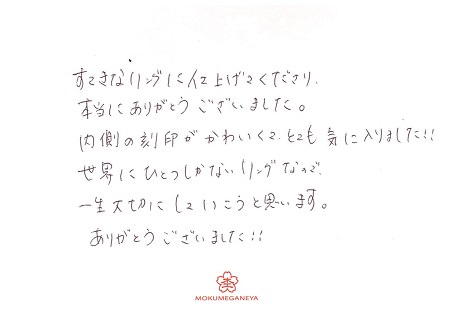 すてきなリングに仕上げてくださり、
本当にありがとうございました。
内側の刻印がかわいくて、とても気に入りました!!
世界にひとつしかないリングなので、
一生大切にしていこうと思います。
ありがとうございました!!
MOKUMEGANEYA